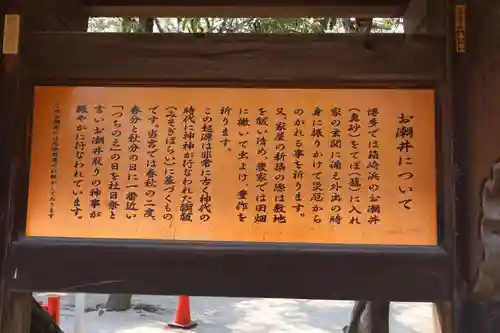 お潮井について
博多では箱崎浜のお潮井
(真砂)をてぼ(篭)に入れ
家の玄関に備え外出の時
身に振りかけて災厄から
のがれる事を祈ります。
又、家屋の新築の際は敷地
を祓い清め、農家では田畑
に撒いて虫よけ、豊作を
祈ります。
この起源は非常に古く神代の
時代に神神が行なわれた禊祓
(みそぎはらい)に基づくもの
です。当宮では春秋の二度
春分と秋分の日に一番近い
「つちのえ」の日を社日祭と
言いお潮井取りの神事が
賑やかに行なわれています。